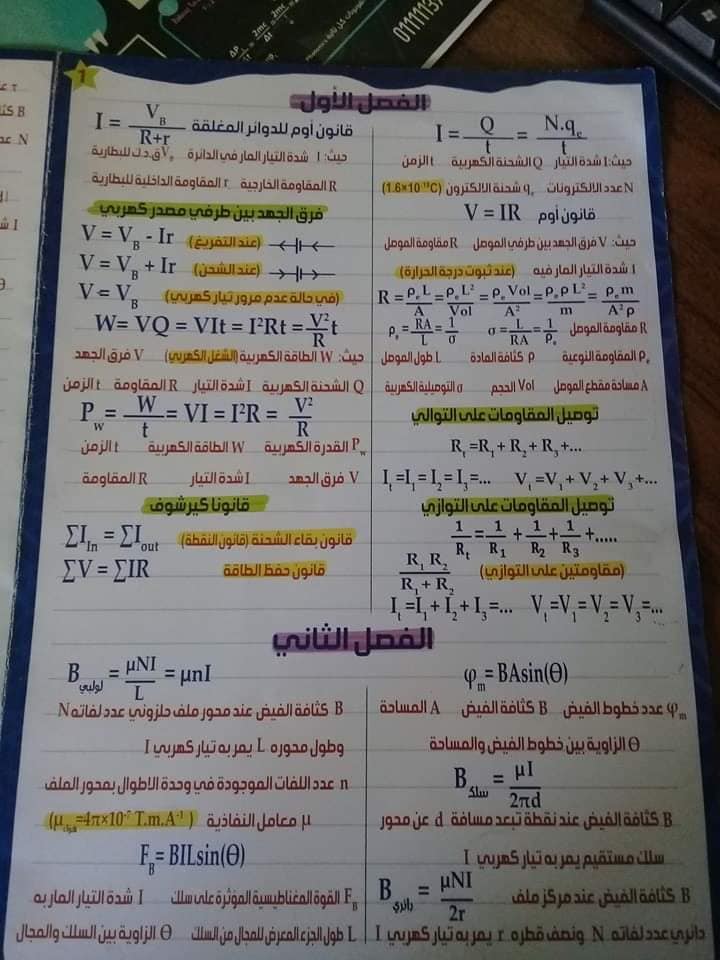 1
الفصل الأول
I = Q/t = N.qₑ/t
حيث: I شدة التيار Q الشحنة الكهربية t الزمن
N عدد الالكترونات qₑ شحنة الالكترون (1.6×10⁻¹⁹C)
قانون أوم V = IR
حيث: V فرق الجهد بين طرفي الموصل R مقاومة الموصل
I شدة التيار المار فيه (عند ثبوت درجة الحرارة)
R = ρₑL/A = ρₑL²/Vol = ρₑVol/A² = ρₑρL²/m = ρₑm/A²ρ
R مقاومة الموصل ρₑ = RA/L = 1/σ σ = L/RA = 1/ρₑ
ρₑ المقاومة النوعية ρ كثافة المادة L طول الموصل
A مساحة مقطع الموصل Vol الحجم σ التوصيلية الكهربية
توصيل المقاومات على التوالي
Rₜ =R₁ + R₂ + R₃ +...
Iₜ =I₁ = I₂ = I₃ =... Vₜ =V₁ + V₂ + V₃ +...
توصيل المقاومات على التوازي
1/Rₜ = 1/R₁ + 1/R₂ + 1/R₃ +.....
(مقاومتين على التوازي) R₁ R₂/R₁ + R₂
Iₜ =I₁ + I₂ + I₃ =... Vₜ =V₁ = V₂ = V₃ =...
قانون أوم للدوائر المغلقة I = V_B/R+r
حيث: I شدة التيار المار في الدائرة V_B ق.د.ك للبطارية
R المقاومة الخارجية r المقاومة الداخلية للبطارية
فرق الجهد بين طرفي مصدر كهربي
V = V_B - Ir (عند التفريغ)
V = V_B + Ir (عند الشحن)
V = V_B (في حالة عدم مرور تيار كهربي)
W= VQ = VIt = I²Rt = V²/R t
حيث: W الطاقة الكهربية (الشغل الكهربي) V فرق الجهد
Q الشحنة الكهربية I شدة التيار R المقاومة t الزمن
P_w = W/t = VI = I²R = V²/R
P_w القدرة الكهربية W الطاقة الكهربية t الزمن
V فرق الجهد I شدة التيار R المقاومة
قانونا كيرشوف
∑I_In = ∑I_out قانون بقاء الشحنة (قانون النقطة)
∑V = ∑IR قانون حفظ الطاقة
الفصل الثاني
φ_m = BAsin(Θ)
φ_m عدد خطوط الفيض B كثافة الفيض A المساحة
Θ الزاوية بين خطوط الفيض والمساحة
B سلك = μI/2πd
B كثافة الفيض عند نقطة تبعد مسافة d عن محور
سلك مستقيم يمر به تيار كهربي I
B كثافة الفيض عند مركز ملف B دائري = μNI/2r
دائري عدد لفاته N ونصف قطره r يمر به تيار كهربي I
B لولبي = μNI/L = μnI
B كثافة الفيض عند محور ملف حلزوني عدد لفاته N
وطول محوره L يمر به تيار كهربي I
n عدد اللفات الموجودة في وحدة الاطوال بمحور الملف
μ معامل النفاذية (μ هواء =4π×10⁻⁷ T.m.A⁻¹)
F_B = BILsin(Θ)
F_B القوة المغناطيسية المؤثرة على سلك I شدة التيار المار به
L طول الجزء المعرض للمجال من السلك Θ الزاوية بين السلك والمجال